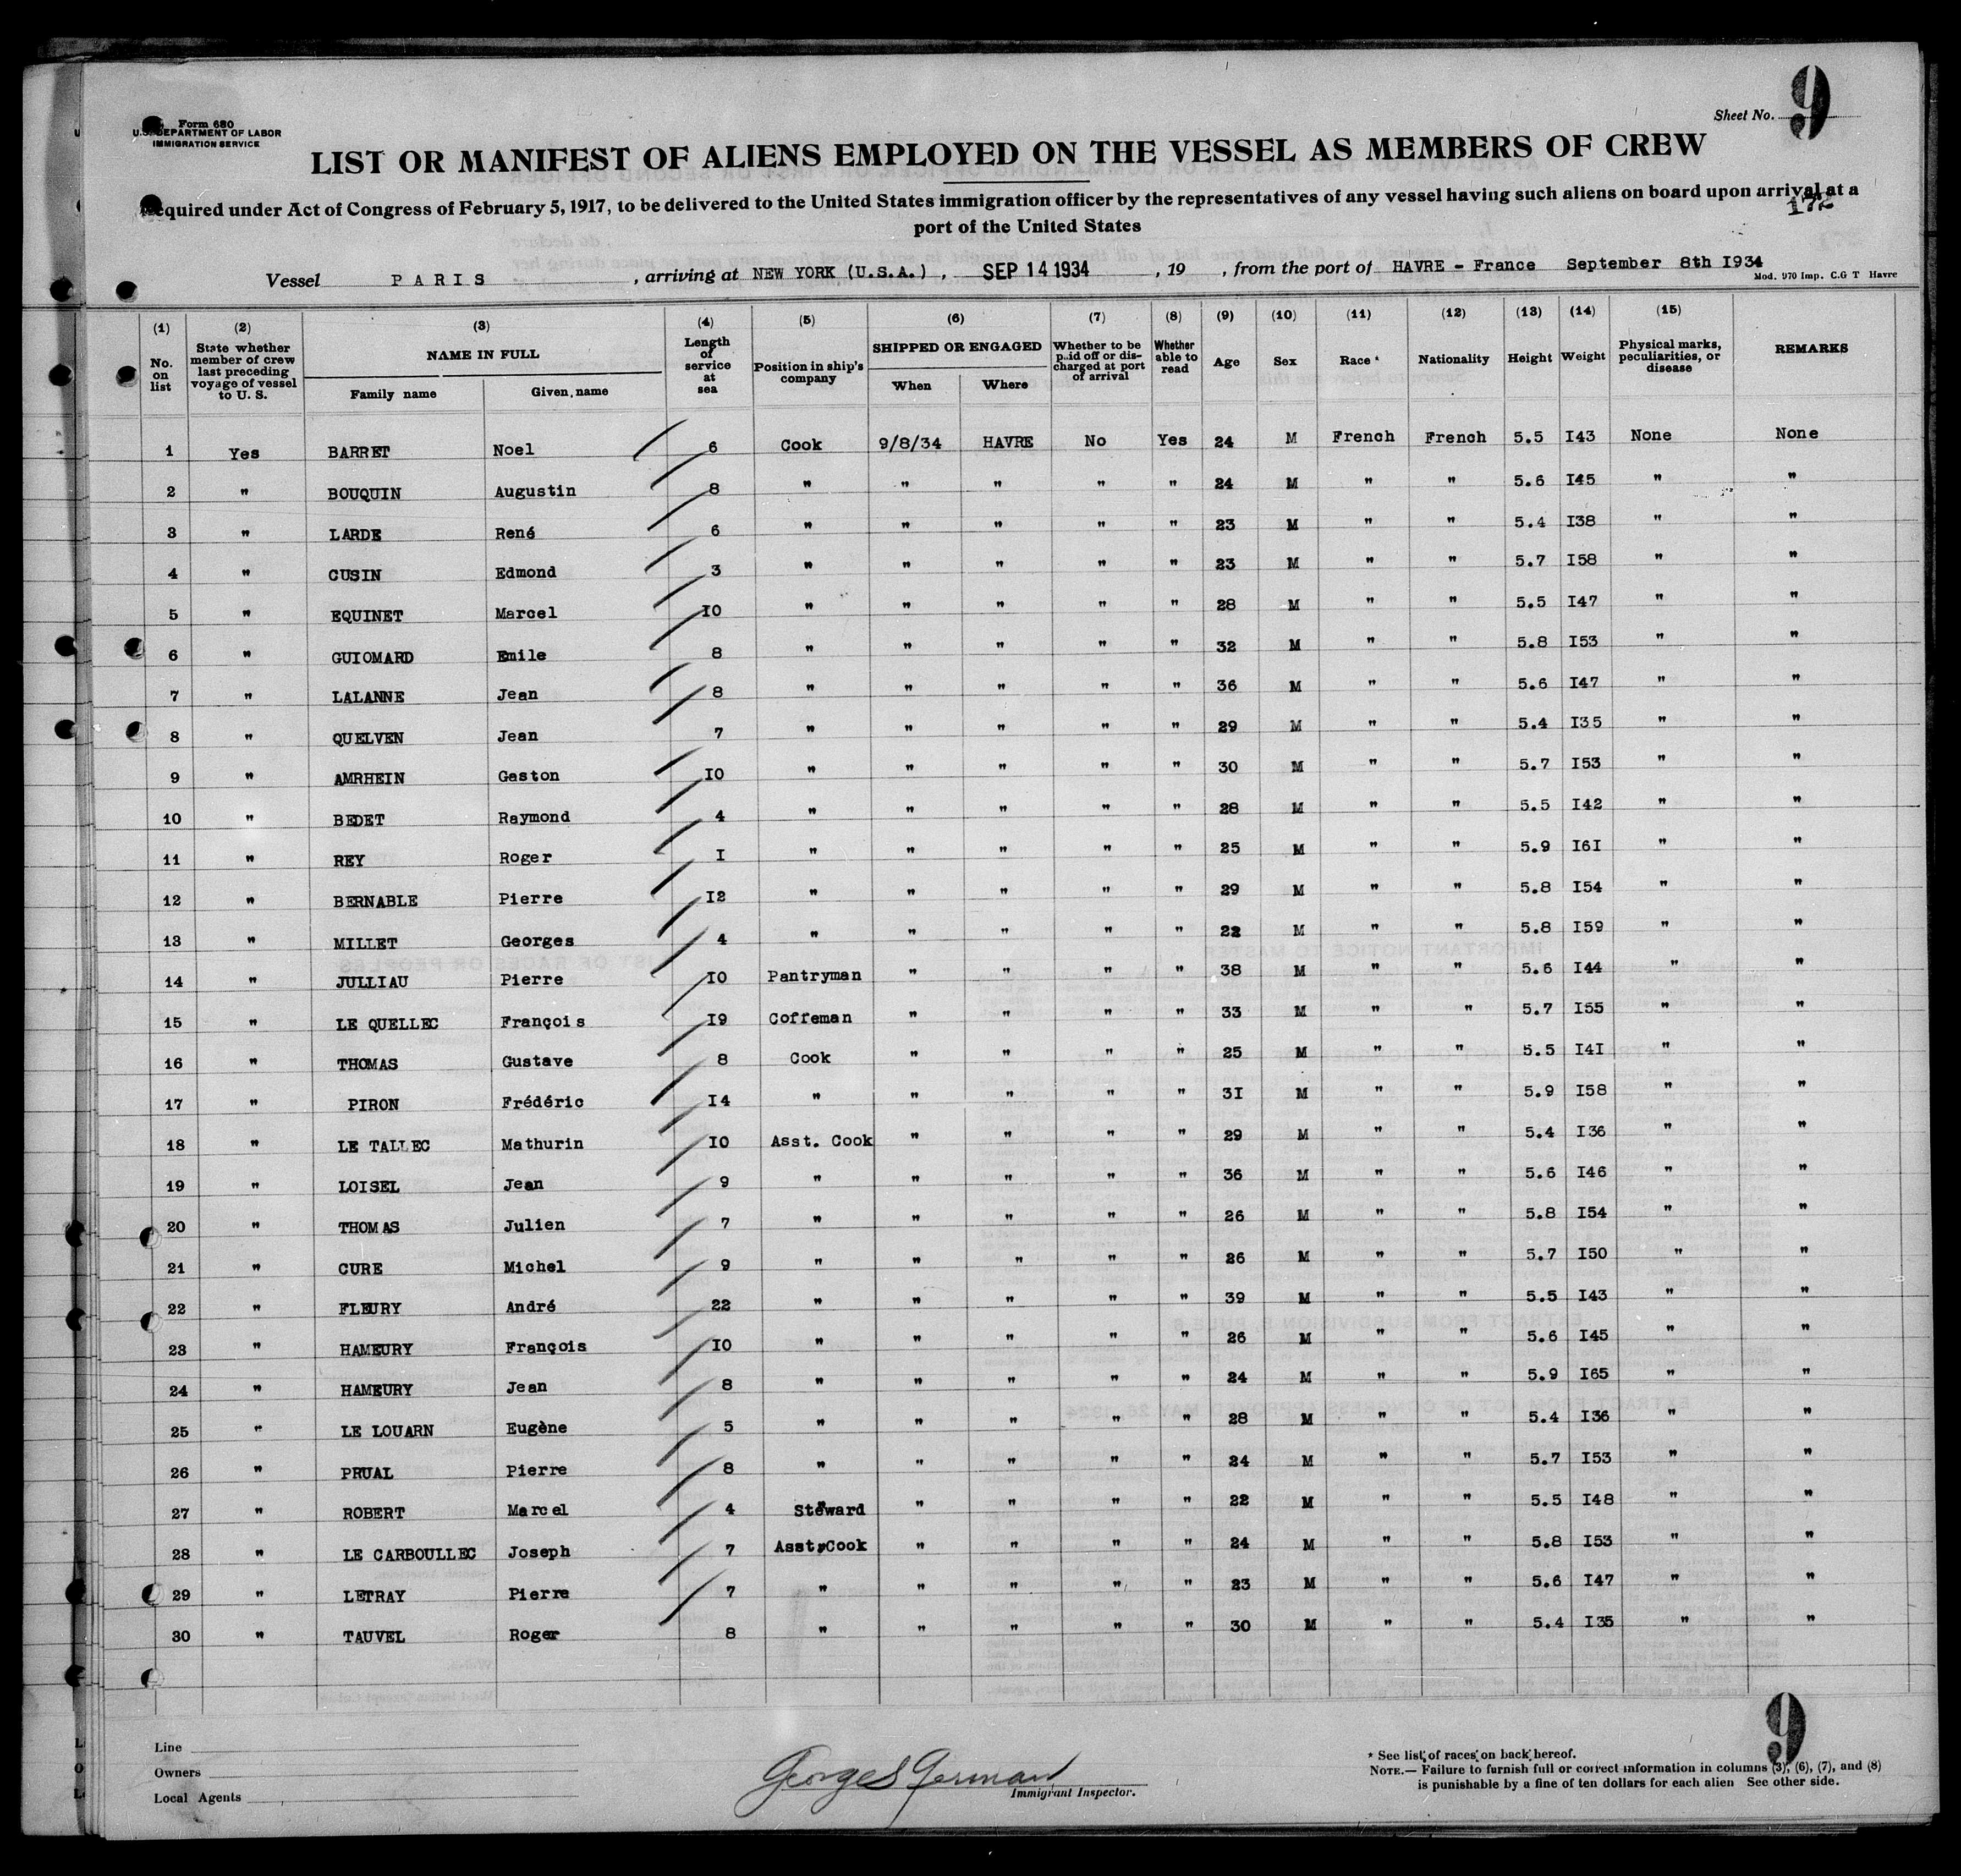 Form 680
U.S. DEPARTMENT OF LABOR
IMMIGRATION SERVICE
Sheet No. 9
LIST OR MANIFEST OF ALIENS EMPLOYED ON THE VESSEL AS MEMBERS OF CREW
Required under Act of Congress of February 5, 1917, to be delivered to the United States immigration officer by the representatives of any vessel having such aliens on board upon arrival at a
port of the United States
172
Vessel PARIS , arriving at NEW YORK (U.S.A.) , SEP 14 1934 , 19 , from the port of HAVRE - France September 8th I934
Mod. 970 Imp. C.G T Havre
(1) (2) (3) (4) (5) (6) (7) (8) (9) (10) (11) (12) (13) (14) (15)
No. on list | State whether member of crew last preceding voyage of vessel to U. S. | NAME IN FULL Family name Given name | Length of service at sea | Position in ship's company | SHIPPED OR ENGAGED When Where | Whether to be paid off or discharged at port of arrival | Whether able to read | Age | Sex | Race * | Nationality | Height | Weight | Physical marks, peculiarities, or disease | REMARKS
1 Yes BARRET Noel 6 Cook 9/8/34 HAVRE No Yes 24 M French French 5.5 I43 None None
2 " BOUQUIN Augustin 8 " " " " " 24 M " " 5.6 I45 " "
3 " LARDE René 6 " " " " " 23 M " " 5.4 I38 " "
4 " CUSIN Edmond 3 " " " " " 23 M " " 5.7 I58 " "
5 " EQUINET Marcel IO " " " " " 28 M " " 5.5 I47 " "
6 " GUIOMARD Emile 8 " " " " " 32 M " " 5.8 I53 " "
7 " LALANNE Jean 8 " " " " " 36 M " " 5.6 I47 " "
8 " QUELVEN Jean 7 " " " " " 29 M " " 5.4 I35 " "
9 " AMRHEIN Gaston IO " " " " " 30 M " " 5.7 I53 " "
10 " BEDET Raymond 4 " " " " " 28 M " " 5.5 I42 " "
11 " REY Roger I " " " " " 25 M " " 5.9 I6I " "
12 " BERNABLE Pierre I2 " " " " " 29 M " " 5.8 I54 " "
13 " MILLET Georges 4 " " " " " 22 M " " 5.8 I59 " "
14 " JULLIAU Pierre IO Pantryman " " " " 38 M " " 5.6 I44 " "
15 " LE QUELLEC François I9 Coffeman " " " " 33 M " " 5.7 I55 " "
16 " THOMAS Gustave 8 Cook " " " " 25 M " " 5.5 I4I " "
17 " PIRON Frédéric I4 " " " " " 3I M " " 5.9 I58 " "
18 " LE TALLEC Mathurin IO Asst. Cook " " " " 29 M " " 5.4 I36 " "
19 " LOISEL Jean 9 " " " " " 36 M " " 5.6 I46 " "
20 " THOMAS Julien 7 " " " " " 26 M " " 5.8 I54 " "
21 " CURE Michel 9 " " " " " 26 M " " 5.7 I50 " "
22 " FLEURY André 22 " " " " " 39 M " " 5.5 I43 " "
23 " HAMEURY François IO " " " " " 26 M " " 5.6 I45 " "
24 " HAMEURY Jean 8 " " " " " 24 M " " 5.9 I65 " "
25 " LE LOUARN Eugène 5 " " " " " 28 M " " 5.4 I36 " "
26 " PRUAL Pierre 8 " " " " " 24 M " " 5.7 I53 " "
27 " ROBERT Marcel 4 Steward " " " " 22 M " " 5.5 I48 " "
28 " LE CARBOULLEC Joseph 7 Asst. Cook " " " " 24 M " " 5.8 I53 " "
29 " LETRAY Pierre 7 " " " " " 23 M " " 5.6 I47 " "
30 " TAUVEL Roger 8 " " " " " 30 M " " 5.4 I35 " "
Line
Owners
Local Agents
Georges German
Immigrant Inspector.
* See list of races on back hereof.
NOTE.— Failure to furnish full or correct information in columns (3), (6), (7), and (8)
is punishable by a fine of ten dollars for each alien See other side.
9